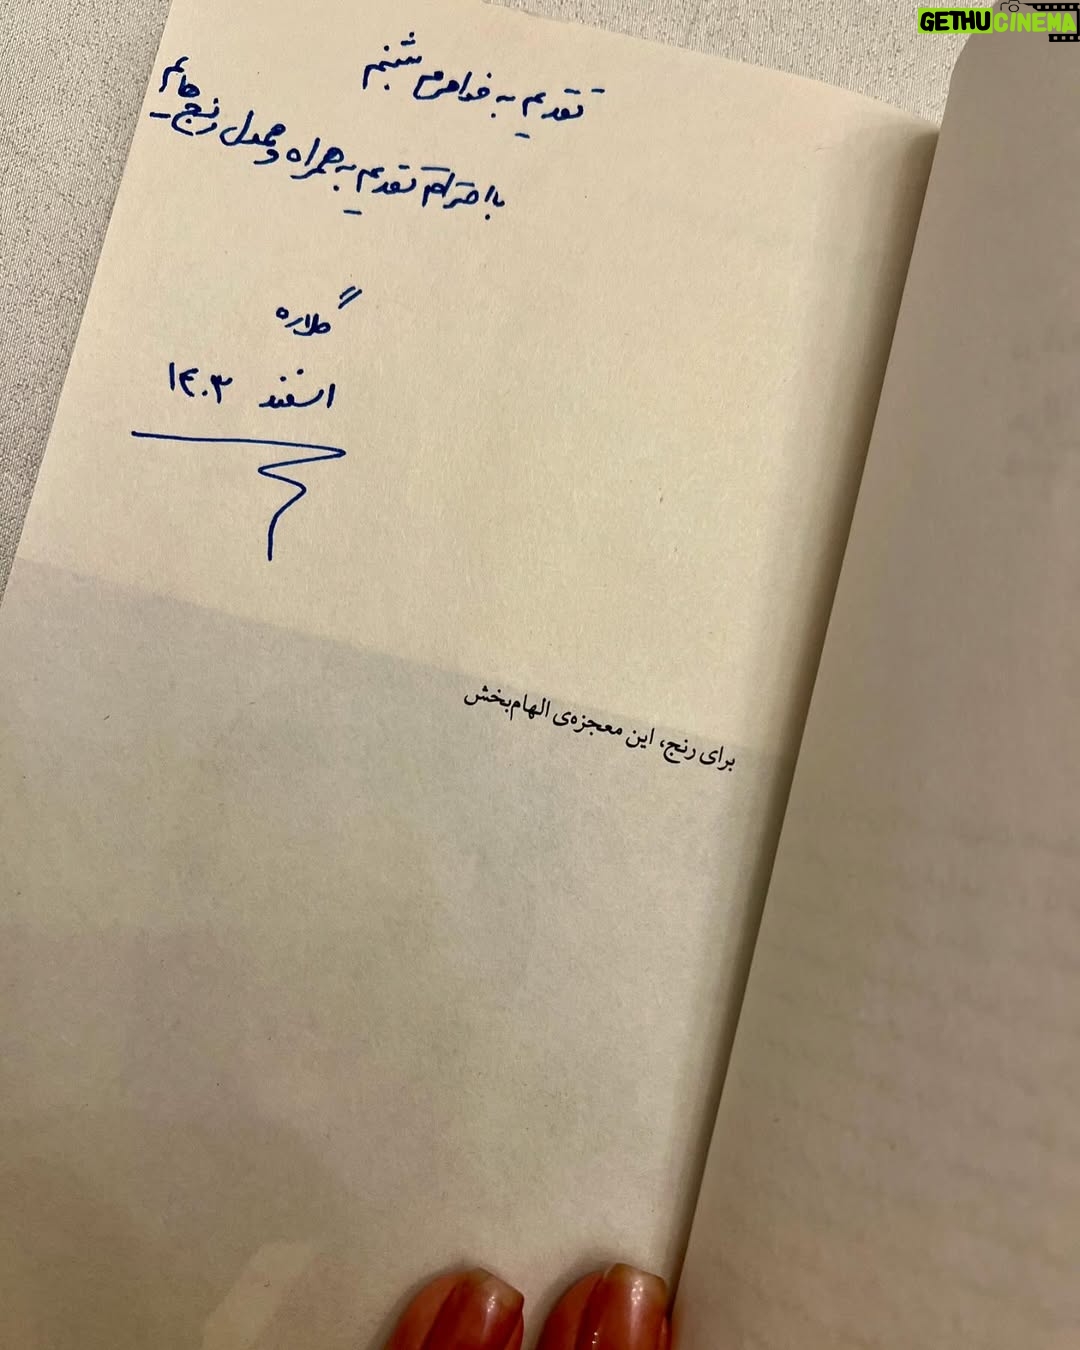 GETHUCINEMA
تقدیم به خواهرم شبنم
با احترام تقدیم به همراه و همدل رنج‌هایم
گلاره
اسفند ۱۴۰۳
برای رنج، این معجزه‌ی الهام‌بخش